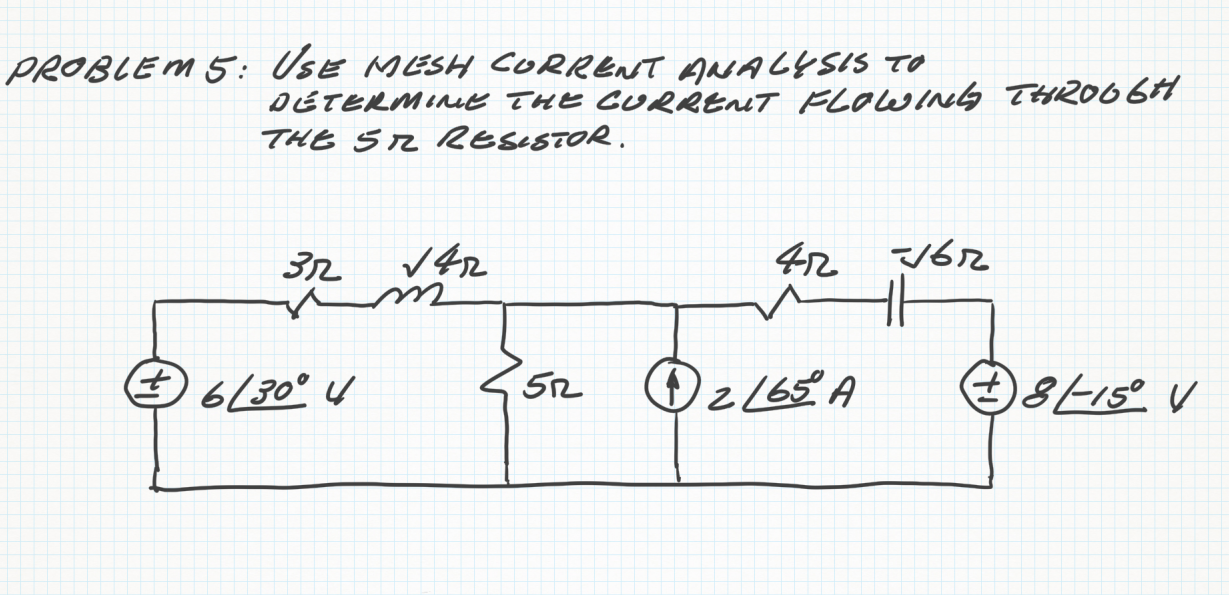 PROBLEM 5: USE MESH CURRENT ANALYSIS TO
DETERMINE THE CURRENT FLOWING THROUGH
THE 5Ω RESISTOR.
3Ω √4Ω 4Ω -√6Ω
6∠30° V 5Ω 2∠65° A 8∠-15° V